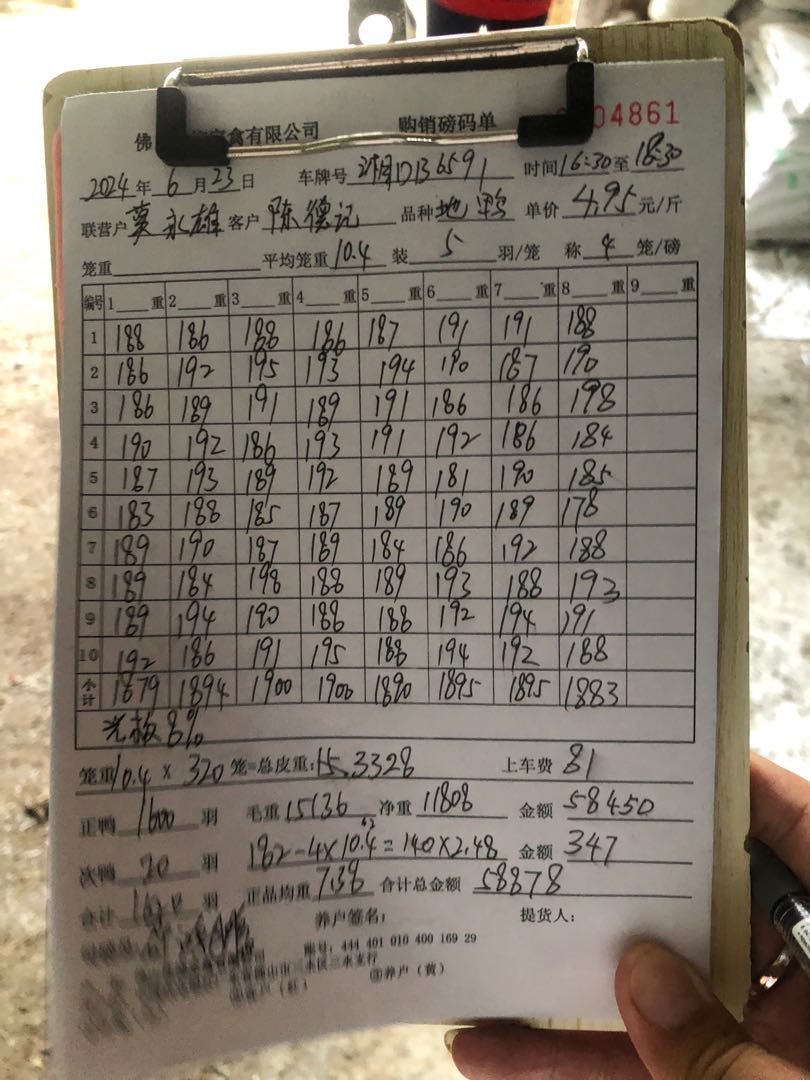 佛 禽有限公司 购销磅码单 04861
2024年6月23日 车牌号 时间16:30至18:30
联营户莫永雄客户陈德记 品种地鸭 单价4.95元/斤
笼重 平均笼重10.4 装5羽/笼 称4笼/磅
编号 1 重 2 重 3 重 4 重 5 重 6 重 7 重 8 重 9 重
1 188 186 188 186 187 191 191 188
2 186 192 195 193 194 190 187 190
3 186 189 191 189 191 186 186 198
4 190 192 186 193 191 192 186 184
5 187 193 189 192 189 181 190 185
6 183 188 185 187 189 190 189 178
7 189 190 187 189 184 186 192 188
8 189 184 198 188 189 193 188 193
9 189 194 190 188 188 192 194 191
10 192 186 191 195 188 194 192 188
小计 1879 1894 1900 1900 1890 1895 1895 1883
光板8%
笼重10.4×320笼=总皮重:3328 上车费81
正鸭1600羽 毛重15136 净重11808 金额58450
次鸭20羽 182-4×10.4=140×2.48 金额347
合计1620羽 正品均重7.38 合计总金额58878
养户签名: 提货人:
账号: 444 401 010 400 169 29
山市三水区三水支行
③养户(黄)